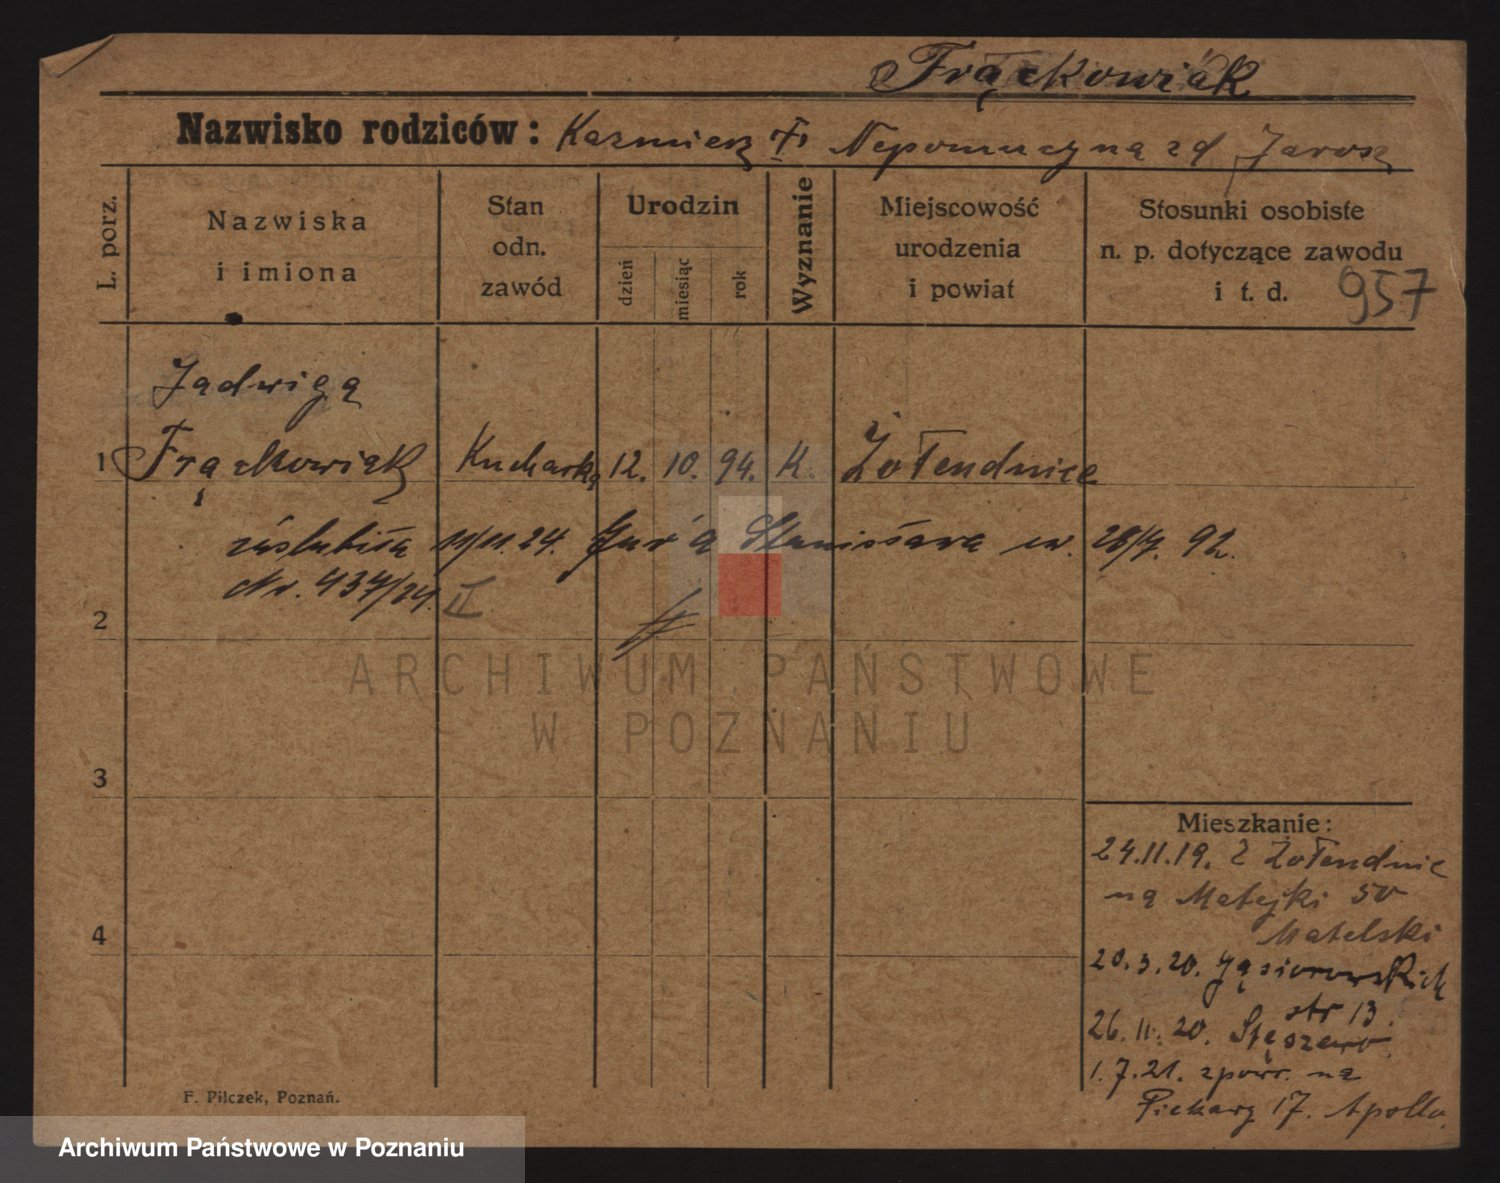 Frąckowiak
Nazwisko rodziców: Kazmierz Fr Nepomucyną zd Jarosz
L. porz.
Nazwiska
i imiona
Stan
odn.
zawód
Urodzin
dzień
miesiąc
rok
Wyznanie
Miejscowość
urodzenia
i powiat
Stosunki osobiste
n. p. dotyczące zawodu
i t. d.
957
Jadwiga
1 Frąckowiak Kucharka 12. 10. 94. K. Żołendnice
zaślubiła 11/11.24. Stanisława ur. 28/4. 92.
Nr. 434/24. II
2
ARCHIWUM PAŃSTWOWE
W POZNANIU
3
Mieszkanie:
24.11.19. z Żołendnic
na Matejki 50
Matelski
4
20.3.20. Gąsiorowskich
str 13.
26.11.20. Stęszewo
1.7.21. zpowr. na
Piekary 17. Apollo.
F. Pilczek, Poznań.
Archiwum Państwowe w Poznaniu